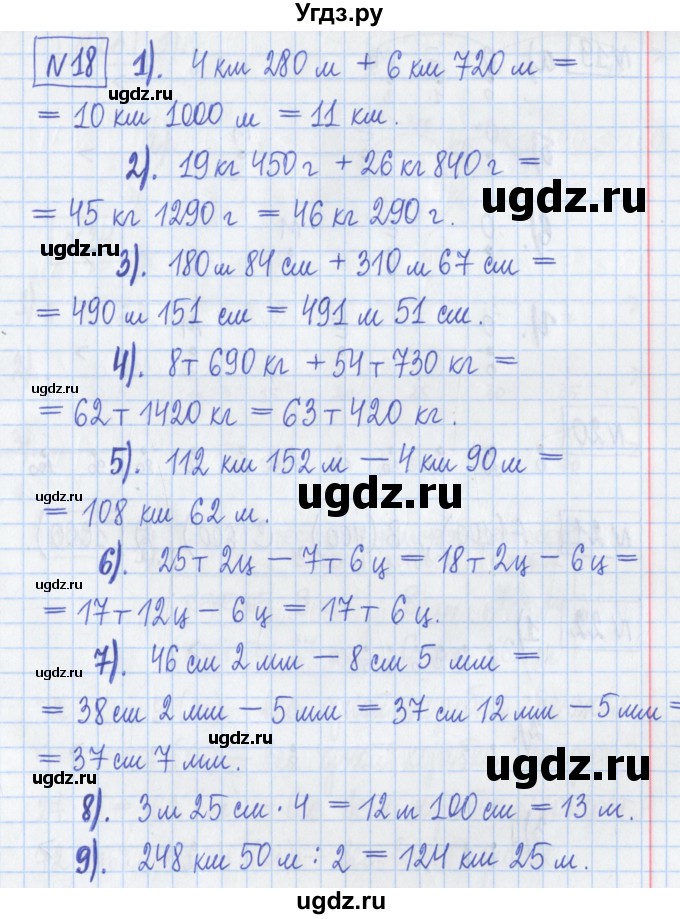 Угдз.ру
№18 1). 4 км 280 м + 6 км 720 м =
ugdz.ru
= 10 км 1000 м = 11 км.
ugdz.ru
2). 19 кг 450 г + 26 кг 840 г =
ugdz.ru
= 45 кг 1290 г = 46 кг 290 г.
ugdz.ru
3). 180 м 84 см + 310 м 67 см =
= 490 м 151 см = 491 м 51 см.
4). 8 т 690 кг + 54 т 730 кг =
ugdz.ru
= 62 т 1420 кг = 63 т 420 кг.
5). 112 км 152 м – 4 км 90 м =
ugdz.ru
ugdz.ru
= 108 км 62 м.
6). 25 т 2 ц – 7 т 6 ц = 18 т 2 ц – 6 ц =
ugdz.ru
= 17 т 12 ц – 6 ц = 17 т 6 ц.
7). 46 см 2 мм – 8 см 5 мм =
ugdz.ru
= 38 см 2 мм – 5 мм = 37 см 12 мм – 5 мм =
= 37 см 7 мм.
ugdz.ru
ugdz.ru
8). 3 м 25 см · 4 = 12 м 100 см = 13 м.
9). 248 км 50 м : 2 = 124 км 25 м.
ugdz.ru
ugdz.ru